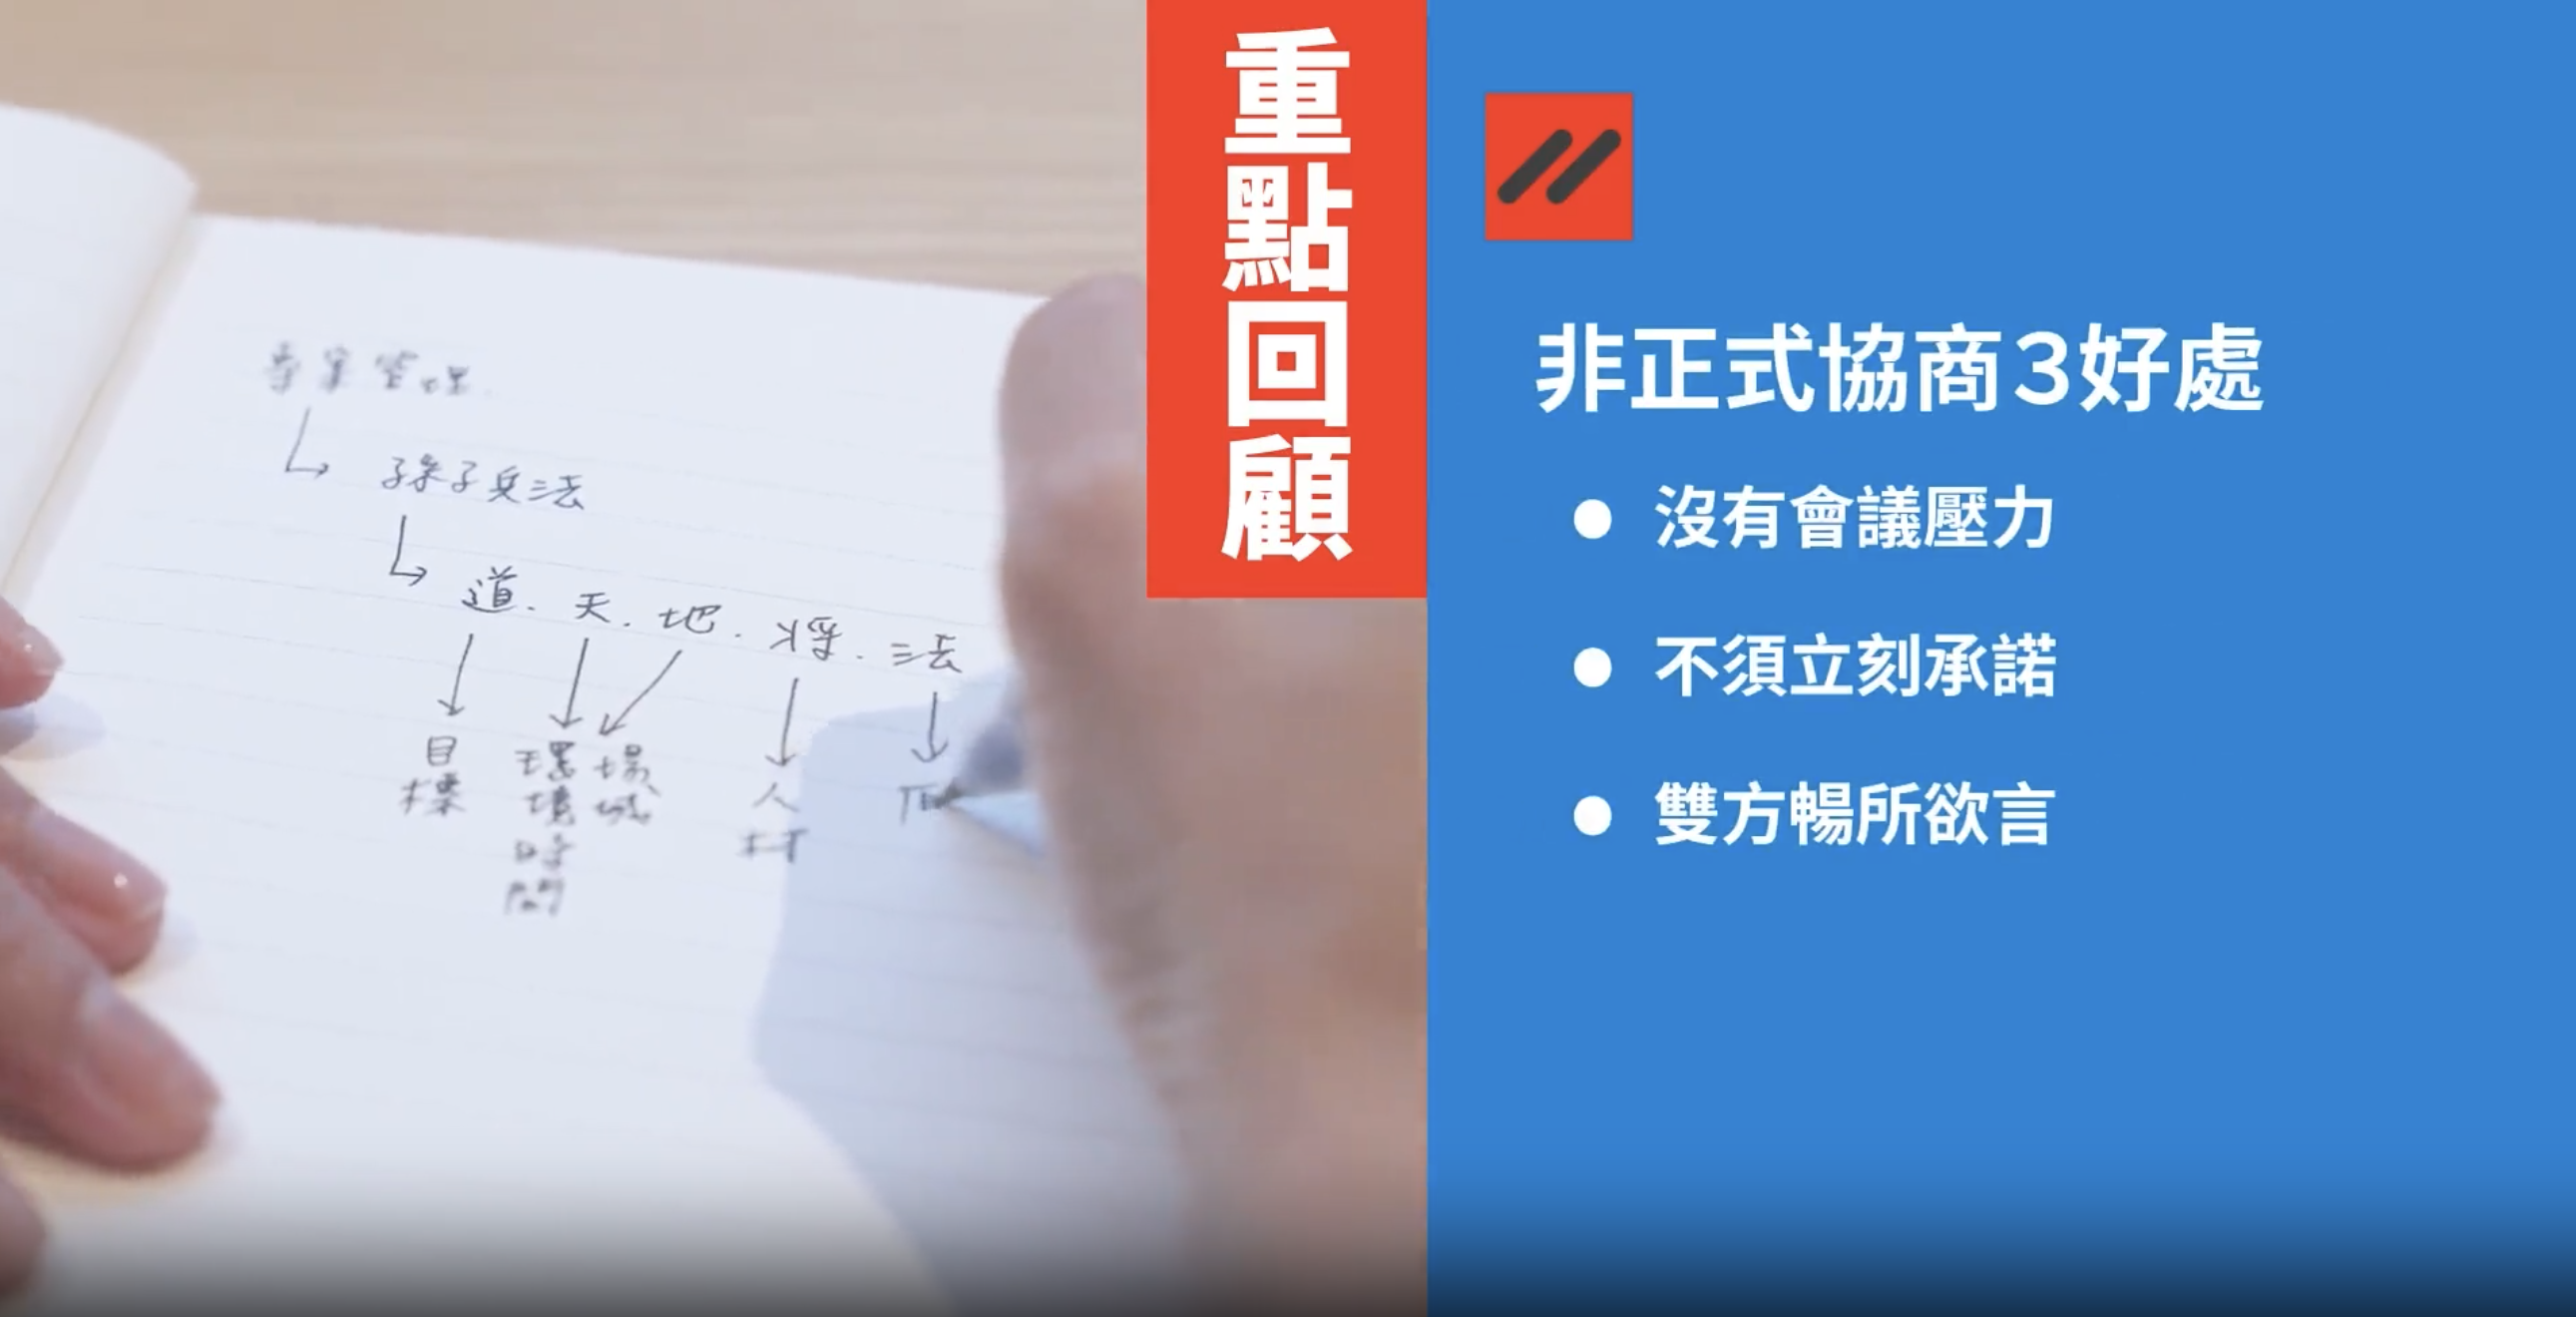 專案管理
孫子兵法
道.天.地.將.法
目標
環境時間
場域
人材
重點回顧
非正式協商3好處
沒有會議壓力
不須立刻承諾
雙方暢所欲言